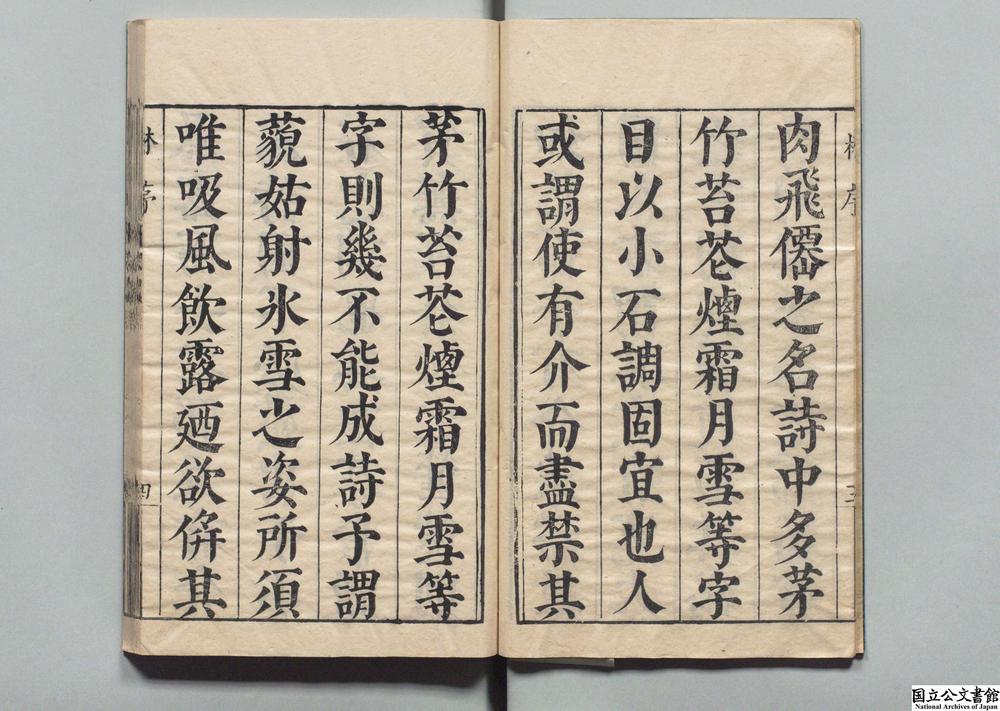 肉飛僊之名詩中多茅
竹苔苍煙霜月雪等字
目以小石調固宜也人
或謂使有介而盡禁其
茅竹苔苍煙霜月雪等
字則幾不能成詩予謂
藐姑射氷雪之姿所須
唯吸風飲露廼欲倂其
序
三
林
序
四
国立公文書館
National Archives of Japan